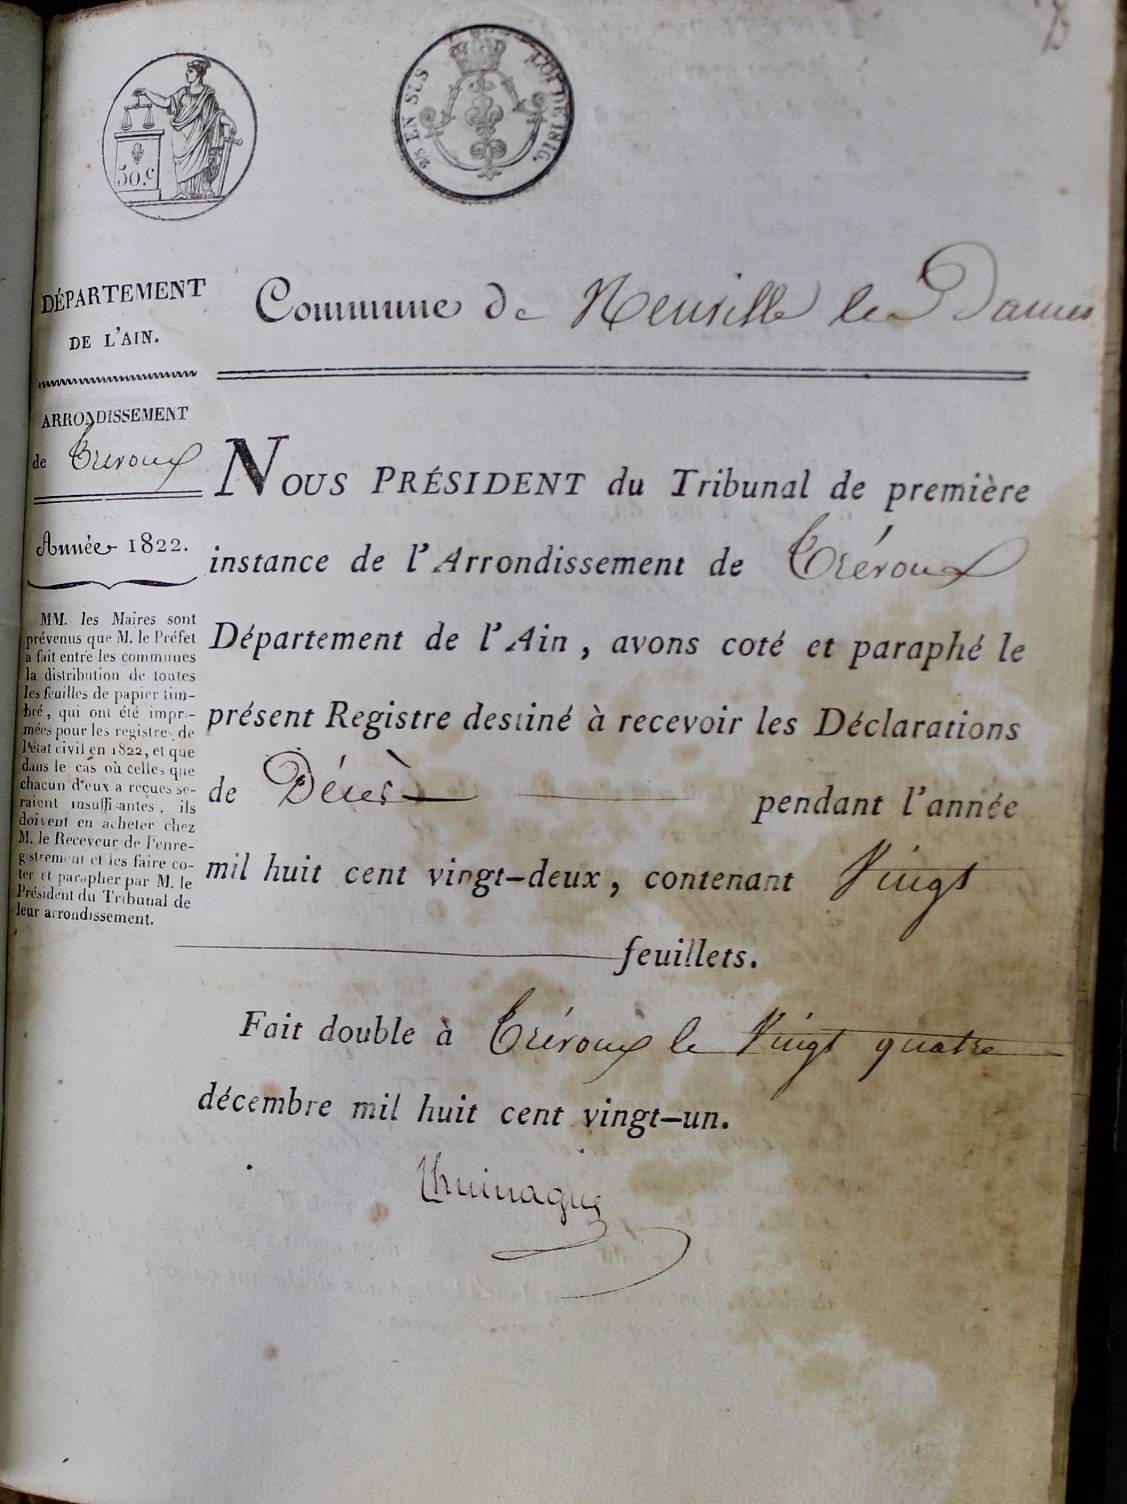 50.c
2/5 EN SUS LOI DE 1816.
DÉPARTEMENT
DE L'AIN.
Commune de Neuville les Dames
ARRONDISSEMENT
de Trévoux
Année 1822.
MM. les Maires sont
prévenus que M. le Préfet
a fait entre les communes
la distribution de toutes
les feuilles de papier tim-
bré, qui ont été impri-
mées pour les registres de
l'état civil en 1822, et que
dans le cas où celles que
chacun d'eux a reçues se-
raient insuffisantes, ils
doivent en acheter chez
M. le Receveur de l'enre-
gistrement et les faire co-
ter et parapher par M. le
Président du Tribunal de
leur arrondissement.
NOUS PRÉSIDENT du Tribunal de première
instance de l'Arrondissement de Trévoux
Département de l'Ain, avons coté et paraphé le
présent Registre destiné à recevoir les Déclarations
de Décès pendant l'année
mil huit cent vingt-deux, contenant Vingt
feuillets.
Fait double à Trévoux le Vingt quatre
décembre mil huit cent vingt-un.